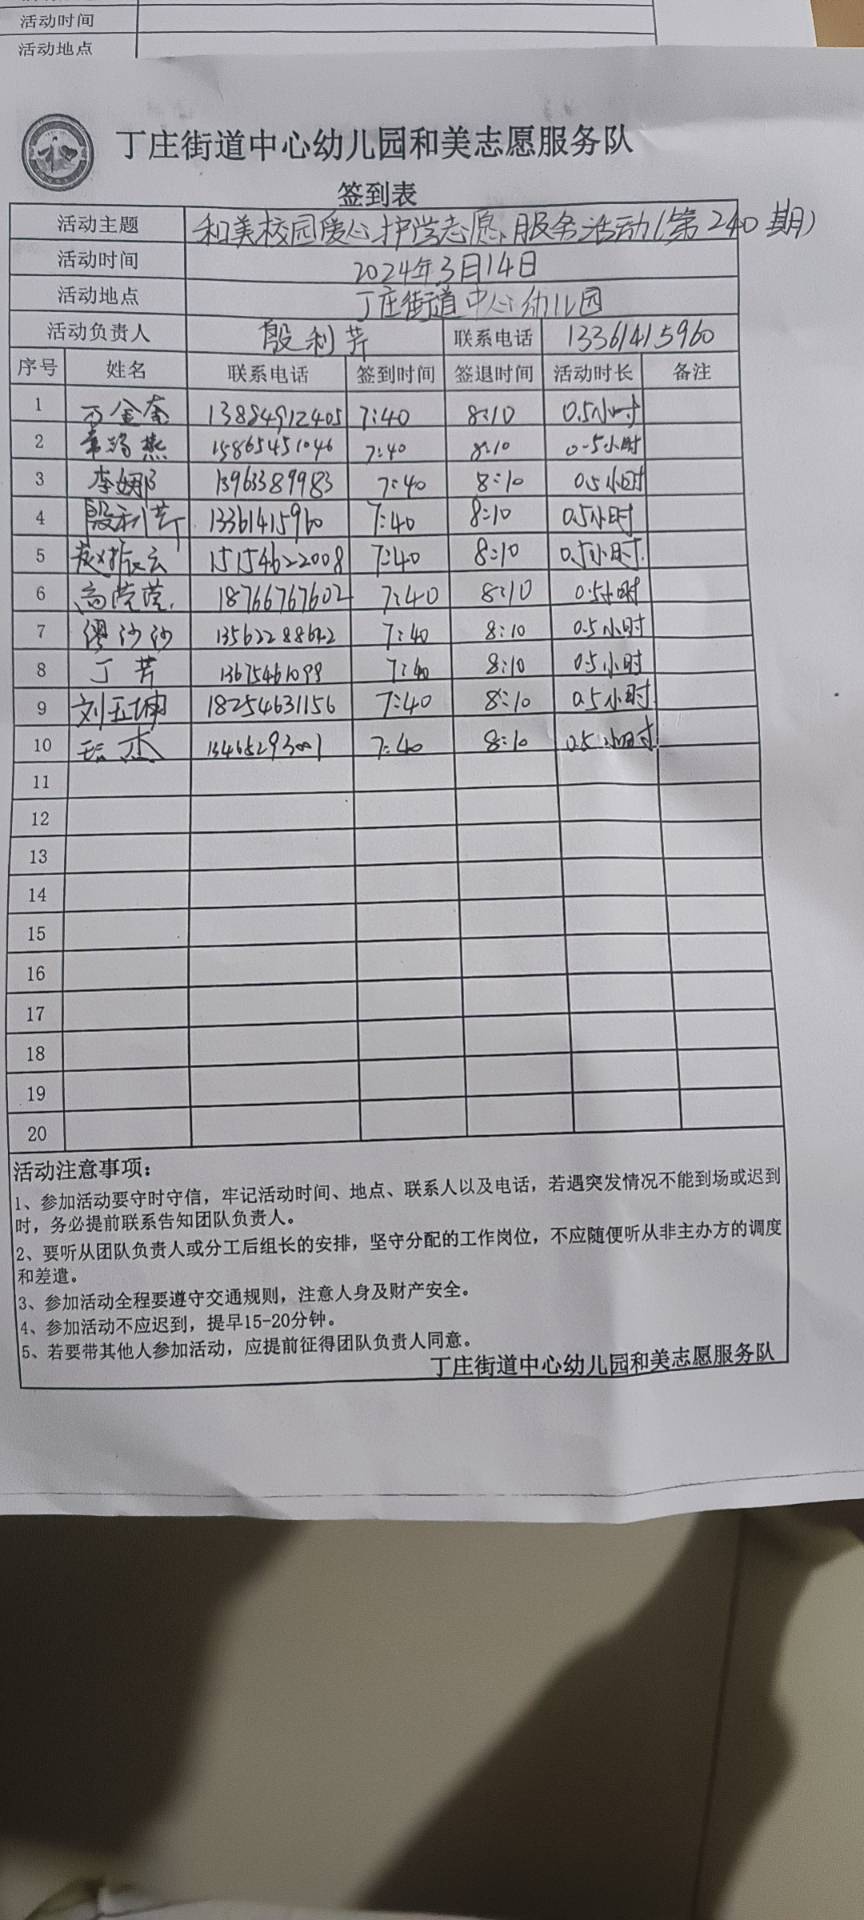 活动时间
活动地点
丁庄街道中心幼儿园和美志愿服务队
签到表
活动主题 和美校园爱心护学志愿服务活动(第240期)
活动时间 2024年3月14日
活动地点 丁庄街道中心幼儿园
活动负责人 殷利芹 联系电话 13361415960
序号 姓名 联系电话 签到时间 签退时间 活动时长 备注
1 万金奎 13884912405 7:40 8:10 0.5小时
2 燕 15865451046 7:40 8:10 0.5小时
3 李娜 13963389983 7:40 8:10 0.5小时
4 殷利芹 13361415960 7:40 8:10 0.5小时
5 赵振云 15154622008 7:40 8:10 0.5小时
6 高莹莹 18766767602 7:40 8:10 0.5小时
7 缪沙沙 7:40 8:10 0.5小时
8 丁芳 13675461099 7:40 8:10 0.5小时
9 刘玉坤 18254631156 7:40 8:10 0.5小时
10 杰 7:40 8:10 0.5小时
11
12
13
14
15
16
17
18
19
20
活动注意事项：
1、参加活动要守时守信，牢记活动时间、地点、联系人以及电话，若遇突发情况不能到场或迟到
时，务必提前联系告知团队负责人。
2、要听从团队负责人或分工后组长的安排，坚守分配的工作岗位，不应随便听从非主办方的调度
和差遣。
3、参加活动全程要遵守交通规则，注意人身及财产安全。
4、参加活动不应迟到，提早15-20分钟。
5、若要带其他人参加活动，应提前征得团队负责人同意。
丁庄街道中心幼儿园和美志愿服务队